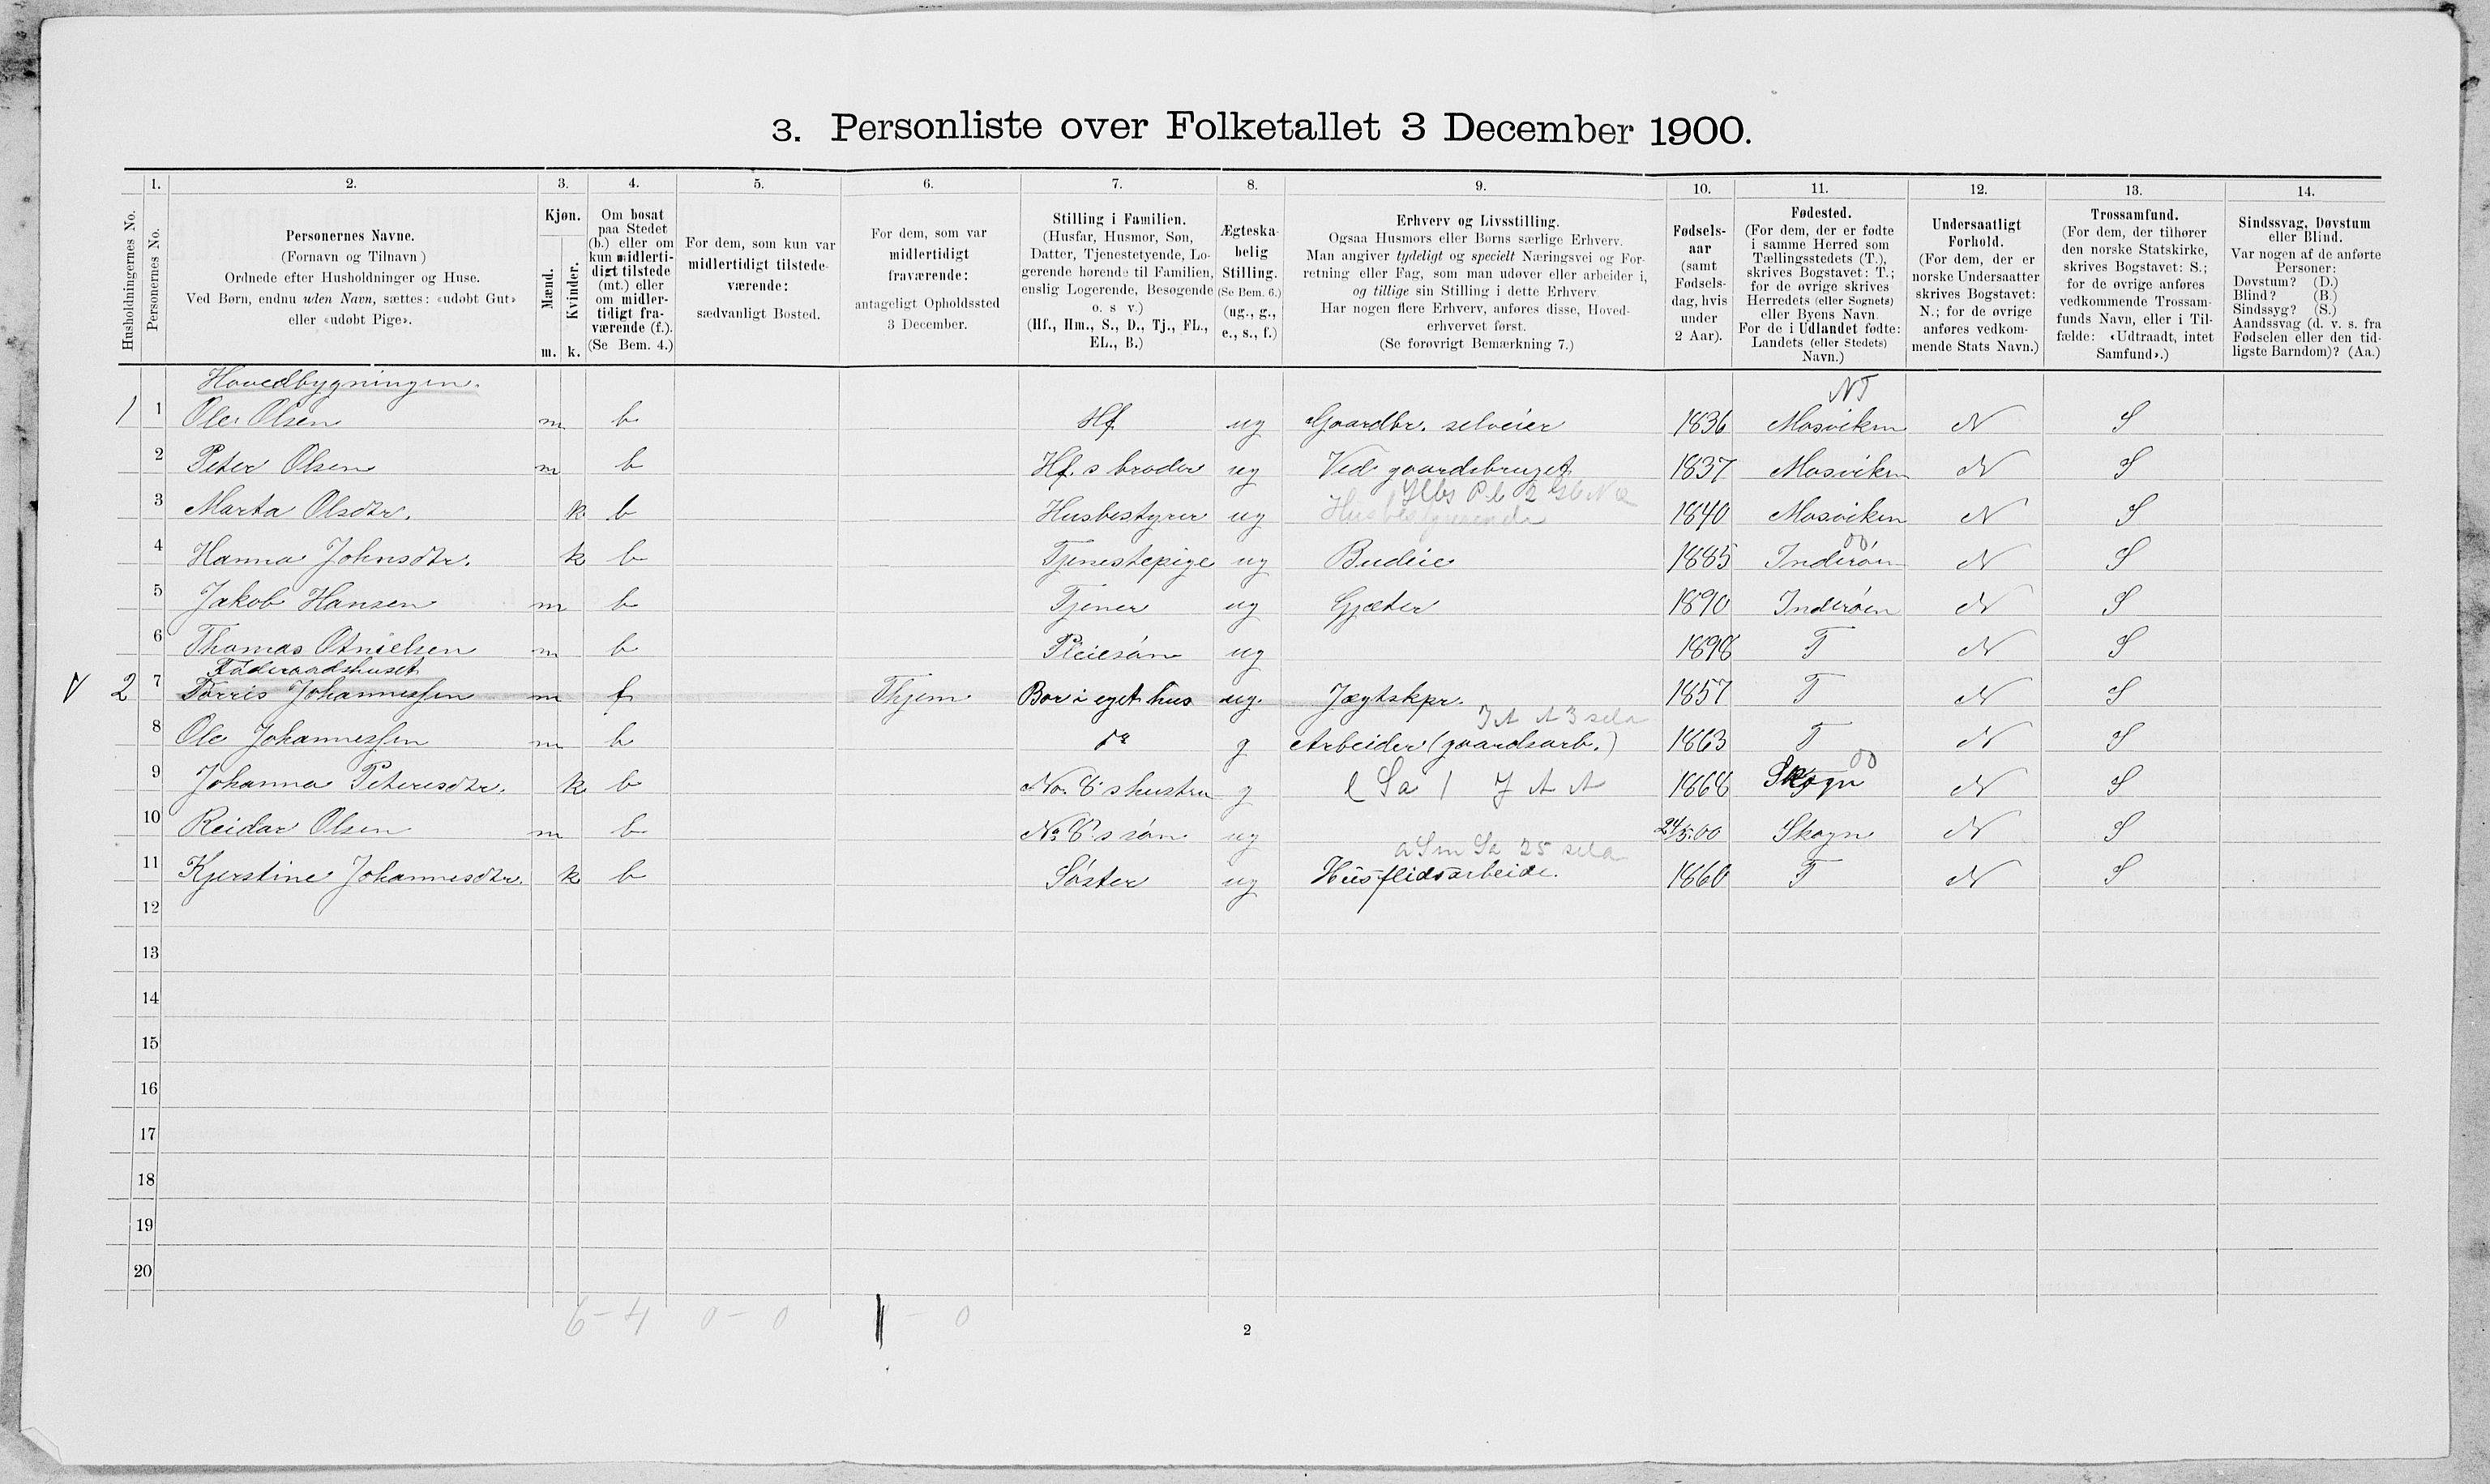 3. Personliste over Folketallet 3 December 1900.
1. 2. 3. 4. 5. 6. 7. 8. 9. 10. 11. 12. 13. 14.
Husholdningernes No.
Personernes No.
Personernes Navne.
(Fornavn og Tilnavn)
Ordnede efter Husholdninger og Huse.
Ved Børn, endnu uden Navn, sættes: «udøbt Gut»
eller «udøbt Pige».
Kjøn.
Mænd.
Kvinder.
m. k.
Om bosat
paa Stedet
(b.) eller om
kun midlerti-
digt tilstede
(mt.) eller
om midler-
tidigt fra-
værende (f.).
(Se Bem. 4.)
For dem, som kun var
midlertidigt tilstede-
værende:
sædvanligt Bosted.
For dem, som var
midlertidigt
fraværende:
antageligt Opholdssted
3 December.
Stilling i Familien.
(Husfar, Husmor, Søn,
Datter, Tjenestetyende, Lo-
gerende hørende til Familien,
enslig Logerende, Besøgende
o. s. v.)
(Hf., Hm., S., D., Tj., FL.,
EL., B.)
Ægteska-
belig
Stilling.
(Se Bem. 6.)
(ug., g.,
e., s., f.)
Erhverv og Livsstilling.
Ogsaa Husmors eller Børns særlige Erhverv.
Man angiver tydeligt og specielt Næringsvei og For-
retning eller Fag, som man udøver eller arbeider i,
og tillige sin Stilling i dette Erhverv.
Har nogen flere Erhverv, anføres disse, Hoved-
erhvervet først.
(Se forøvrigt Bemærkning 7.)
Fødsels-
aar
(samt
Fødsels-
dag, hvis
under
2 Aar).
Fødested.
(For dem, der er fødte
i samme Herred som
Tællingsstedets (T.),
skrives Bogstavet: T.;
for de øvrige skrives
Herredets (eller Sognets)
eller Byens Navn.
For de i Udlandet fødte:
Landets (eller Stedets)
Navn.)
Undersaatligt
Forhold.
(For dem, der er
norske Undersaatter
skrives Bogstavet:
N.; for de øvrige
anføres vedkom-
mende Stats Navn.)
Trossamfund.
(For dem, der tilhører
den norske Statskirke,
skrives Bogstavet: S.;
for de øvrige anføres
vedkommende Trossam-
funds Navn, eller i Til-
fælde: «Udtraadt, intet
Samfund».)
Sindssvag, Døvstum
eller Blind.
Var nogen af de anførte
Personer:
Døvstum? (D.)
Blind? (B.)
Sindssyg? (S.)
Aandssvag (d. v. s. fra
Fødselen eller den tid-
ligste Barndom)? (Aa.)
Hovedbygningen. NT
1 1 Ole Olsen m b Hf ug Gaardbr. selveier 1836 Mosviken N S
2 Peter Olsen m b Hf.s broder ug Ved gaardsbruget 1837 Mosviken N S
3 Marta Olsdtr. k b Husbestyrer ug Husbestyrende 1840 Mosviken N S
4 Hanna Johnsdtr. k b Tjenestepige ug Budeie 1885 Inderøen N S
5 Jakob Hansen m b Tjener ug Gjæter 1890 Inderøen N S
6 Thomas Otnielsen m b Pleiesøn ug 1898 T N S
Føderaadshuset
V 2 7 Torris Johannessen m f Thjem Bor i eget hus ug. Jægtskpr. 1857 T N S
8 Ole Johannessen m b do g Arbeider (gaardsarb.) 1863 T N S
9 Johanna Petersdtr. k b No. 8's hustru g 1868 Skogn N S
10 Reidar Olsen m b No 8's søn ug 24/5.00 Skogn N S
11 Kjerstine Johannesdtr. k b Søster ug Husflidsarbeide. 1860 T N S
12
13
14
15
16
17
18
19
20
6 - 4 0 - 0 1 - 0
2